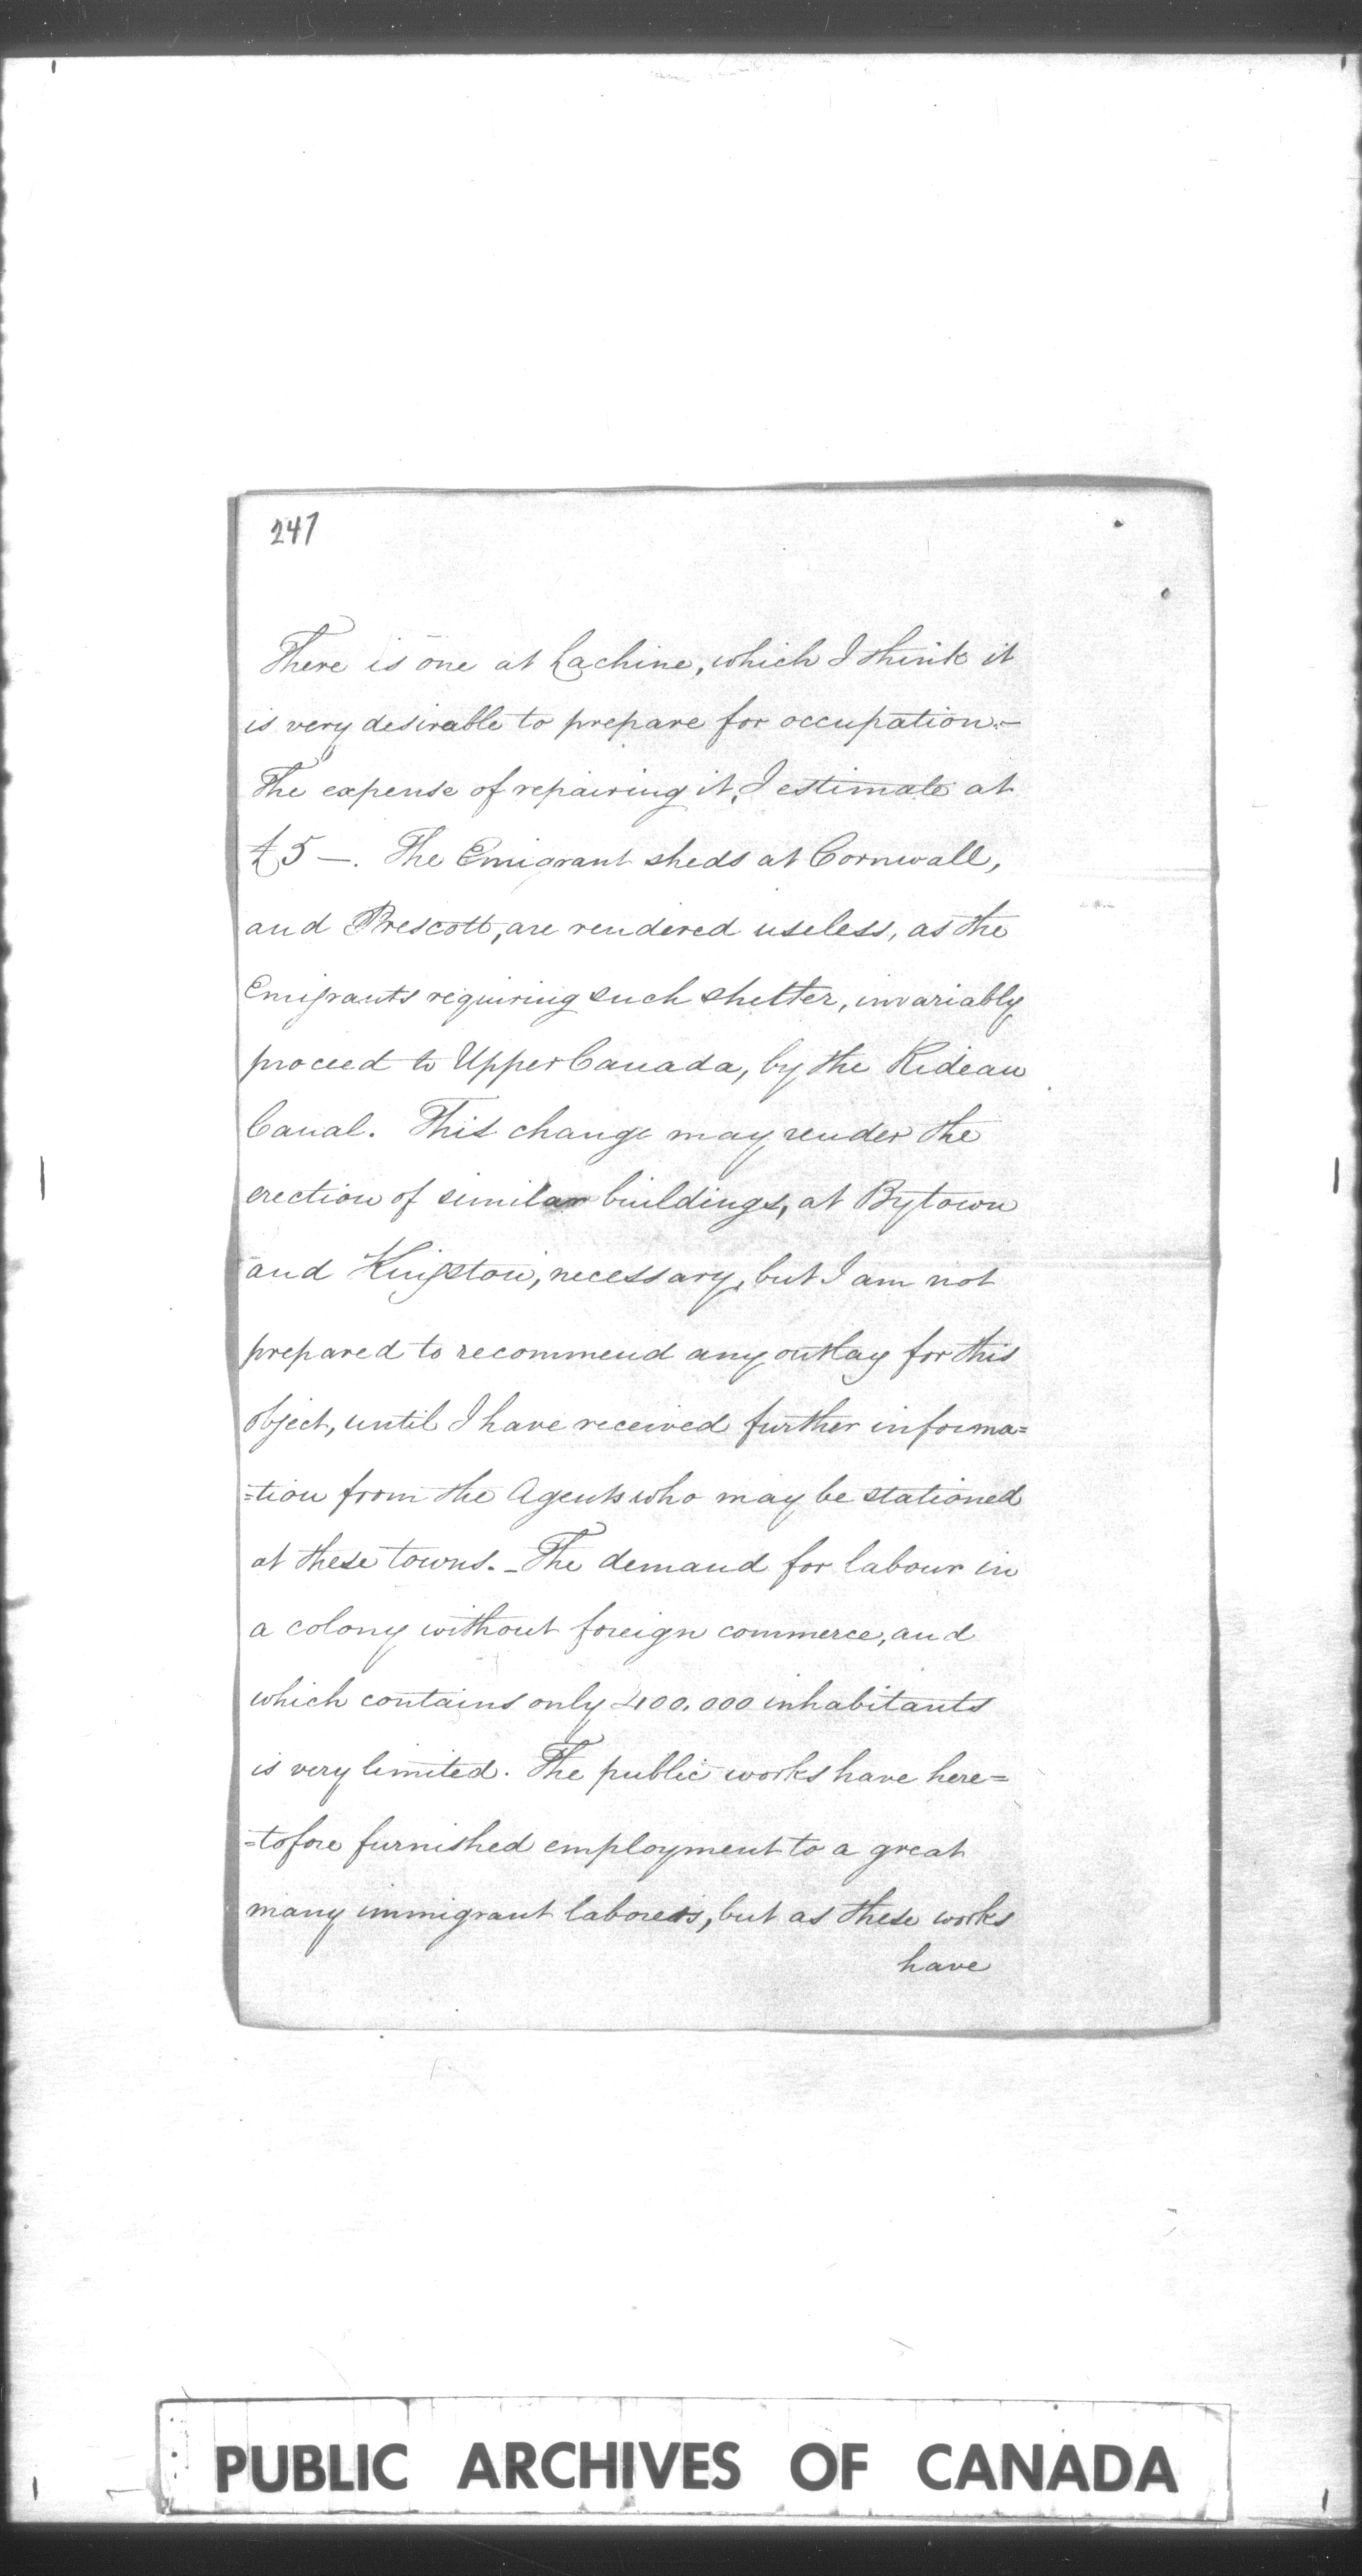 247
There is one at Lachine, which I think it
is very desirable to prepare for occupation.-
The expense of repairing it, I estimate at
£5 —. The Emigrant sheds at Cornwall,
and Prescott, are rendered useless, as the
Emigrants requiring such shelter, invariably
proceed to Upper Canada, by the Rideau
Canal. This change may render the
erection of similar buildings, at Bytown
and Kingston, necessary, but I am not
prepared to recommend any outlay for this
object, until I have received further informa=
=tion from the Agents who may be stationed
at these towns. - The demand for labour in
a colony without foreign commerce, and
which contains only 400,000 inhabitants
is very limited. The public works have here=
=tofore furnished employment to a great
many immigrant laborers, but as these works
have
PUBLIC ARCHIVES OF CANADA